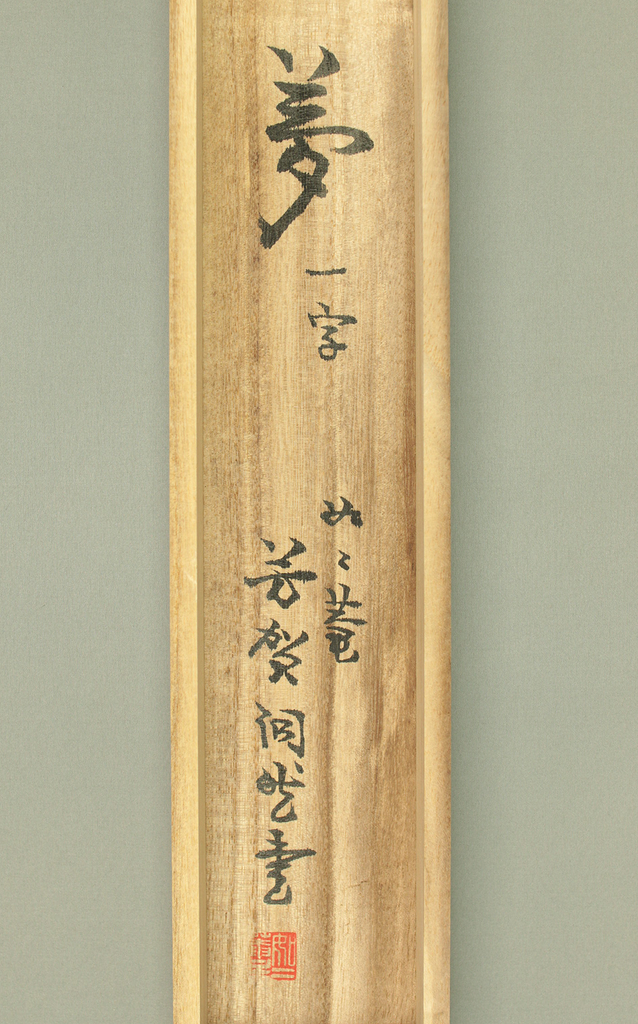 夢
一字
如〻庵
芳賀洞然書